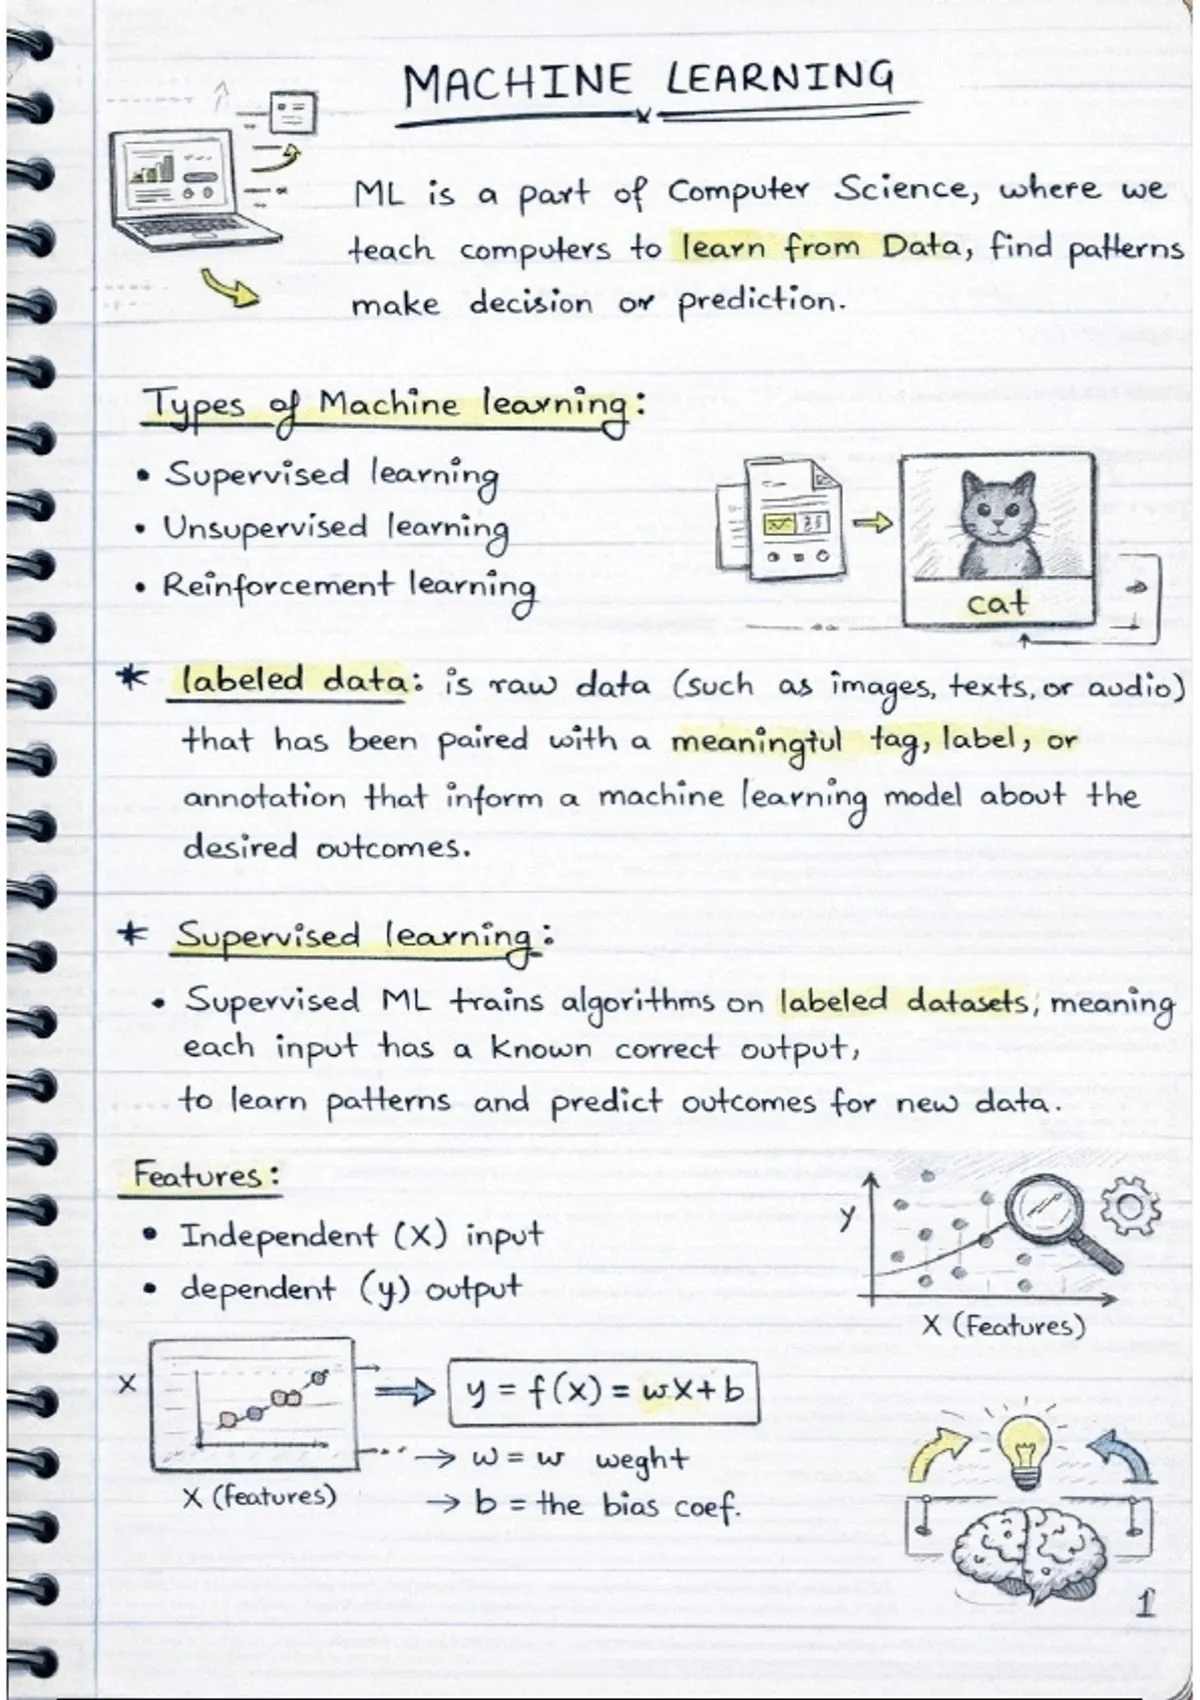 MACHINE LEARNING
ML is a part of Computer Science, where we
teach computers to learn from Data, find patterns
make decision or prediction.
Types of Machine learning:
• Supervised learning
• Unsupervised learning
• Reinforcement learning
cat
* labeled data: is raw data (such as images, texts, or audio)
that has been paired with a meaningful tag, label, or
annotation that inform a machine learning model about the
desired outcomes.
* Supervised learning:
• Supervised ML trains algorithms on labeled datasets, meaning
each input has a known correct output,
to learn patterns and predict outcomes for new data.
Features:
• Independent (X) input
• dependent (y) output
y
X (Features)
X
X (features)
y = f(x) = wX+b
→ w = w weght
→ b = the bias coef.
1